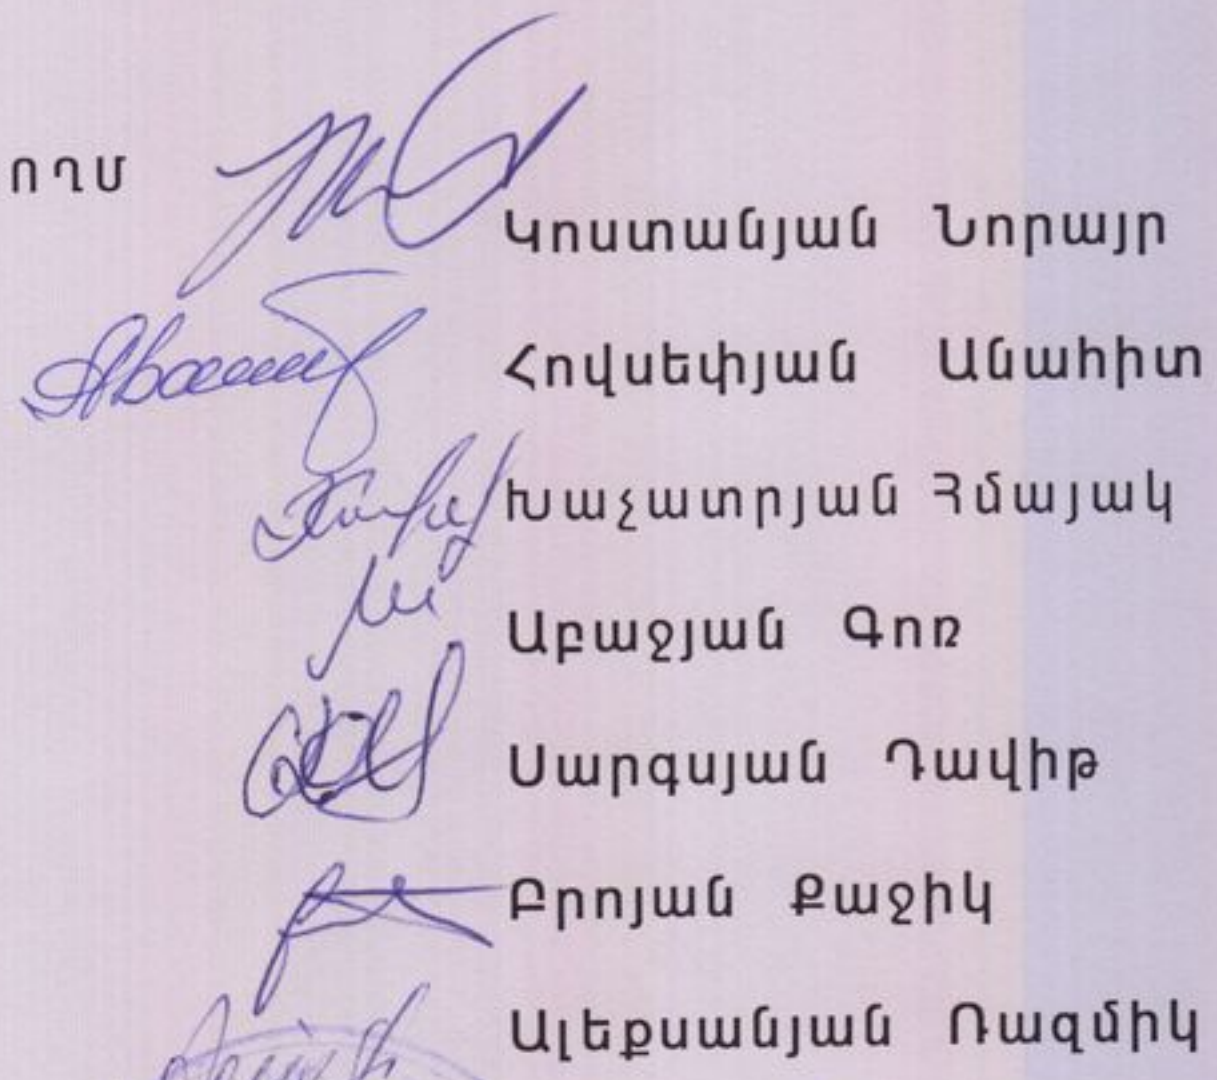 ՈՂՄ
Կոստանյան Նորայր
Հովսեփյան Անահիտ
Խաչատրյան Հմայակ
Աբաջյան Գոռ
Սարգսյան Դավիթ
Բրոյան Քաջիկ
Ալեքսանյան Ռազմիկ